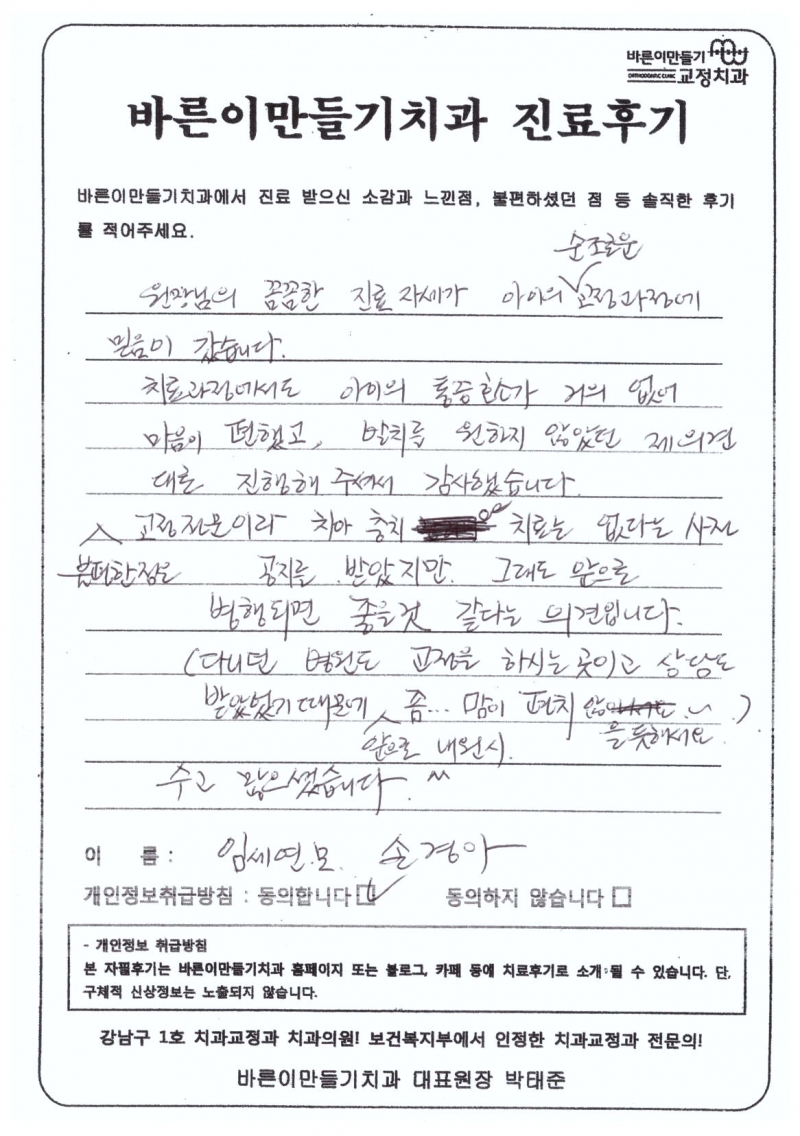 바른이만들기
ORTHODONTIC CLINIC 교정치과
바른이만들기치과 진료후기
바른이만들기치과에서 진료 받으신 소감과 느낀점, 불편하셨던 점 등 솔직한 후기
를 적어주세요.
순조로운
원장님의 꼼꼼한 진료자세가 아이의 교정과정에
믿음이 갔습니다.
치료과정에서도 아이의 통증호소가 거의 없어
마음이 편했고, 발치를 원하지 않았던 제의견
대로 진행해 주셔서 감사했습니다.
교정전문이라 치아 충치 치료는 없다는 사전
불편한점은 공지를 받았지만. 그래도 앞으로
병행되면 좋을것 같다는 의견입니다.
(다니던 병원도 교정을 하시는곳이고 상담도
받았었기때문에 좀... 맘이 편치 않
앞으로 내원시. 을듯해서요. )
수고 많으셨습니다. ^^
이 름 : 임세연.모. 손경아
개인정보취급방침 : 동의합니다 동의하지 않습니다
- 개인정보 취급방침
본 자필후기는 바른이만들기치과 홈페이지 또는 블로그, 카페 등에 치료후기로 소개 될 수 있습니다. 단,
구체적 신상정보는 노출되지 않습니다.
강남구 1호 치과교정과 치과의원! 보건복지부에서 인정한 치과교정과 전문의!
바른이만들기치과 대표원장 박태준